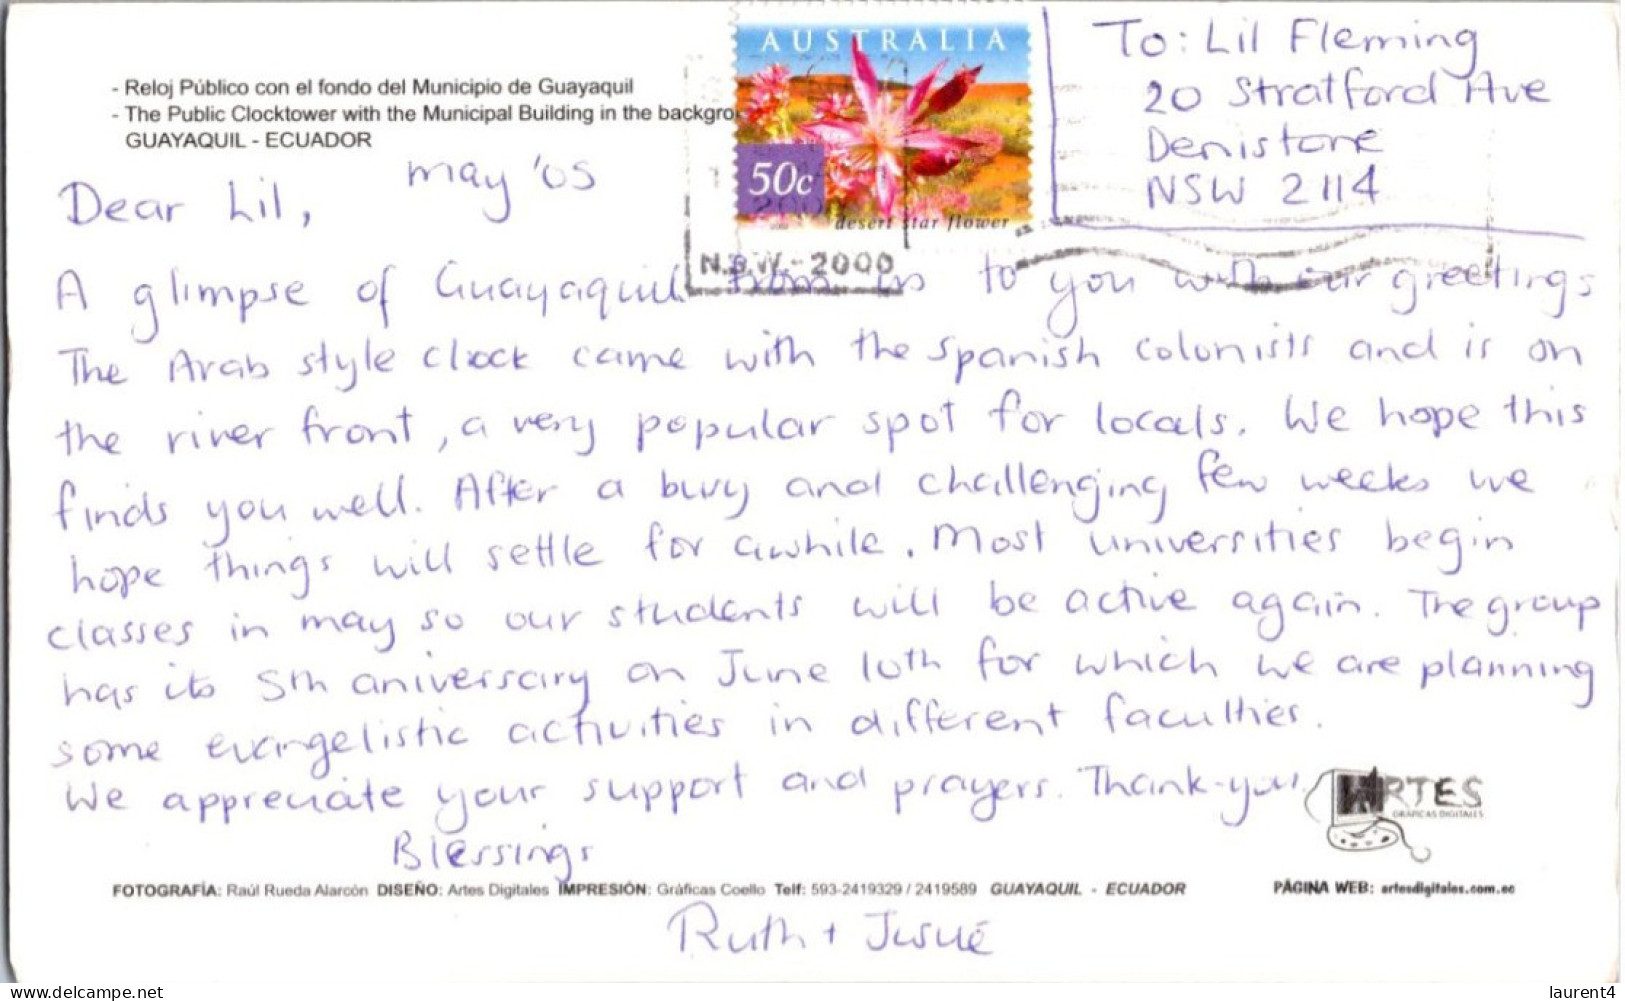 AUSTRALIA
50c
desert star flower
N.S.W - 2000
To: Lil Fleming
20 Stratford Ave
Denistone
NSW 2114
- Reloj Público con el fondo del Municipio de Guayaquil
- The Public Clocktower with the Municipal Building in the backgro
GUAYAQUIL - ECUADOR
May '05
Dear Lil,
A glimpse of Guayaquil from us to you with our greetings
The Arab style clock came with the Spanish colonists and is on
the river front, a very popular spot for locals. We hope this
finds you well. After a busy and challenging few weeks we
hope things will settle for awhile. Most universities begin
classes in May so our students will be active again. The group
has its 5th aniversary on June 10th for which we are planning
some evangelistic activities in different faculties.
We appreciate your support and prayers. Thank-you.
Blessings
ARTES
GRÁFICAS DIGITALES
FOTOGRAFÍA: Raúl Rueda Alarcón DISEÑO: Artes Digitales IMPRESIÓN: Gráficas Coello Telf: 593-2419329 / 2419589 GUAYAQUIL - ECUADOR PÁGINA WEB: artesdigitales.com.ec
Ruth + Josué
www.delcampe.net
laurent4